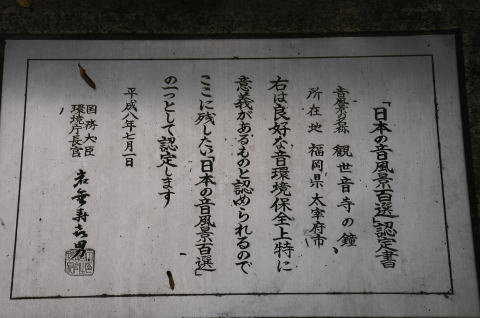 「日本の音風景百選」認定書
音風景の名称 観世音寺の鐘、
所在地 福岡県太宰府市
右は良好な音環境保全上特に
意義があるものと認められるので
ここに残したい「日本の音風景百選」
の一つとして認定します
平成八年七月一日
国務大臣
環境庁長官 岩垂寿喜男